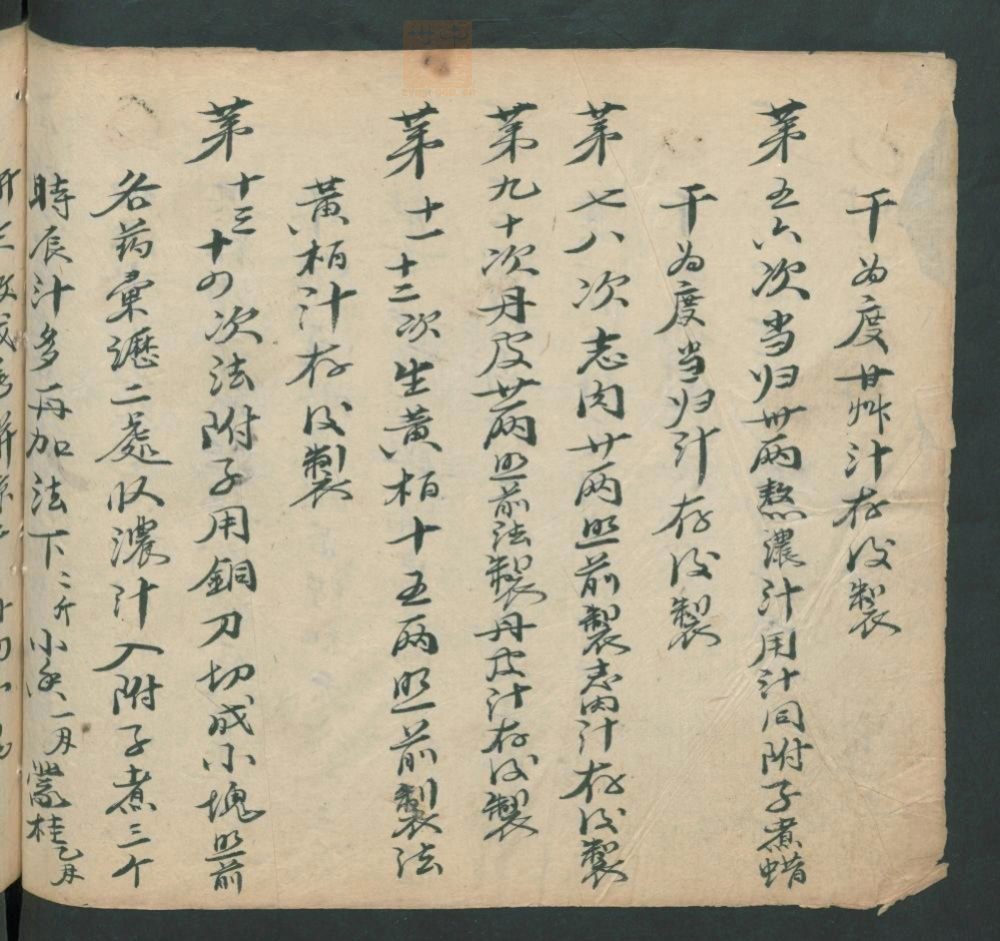 干为度甘艸汁存後製
第五六次当归卅两熬濃汁用汁同附子煮蜡
干为度当归汁存後製
第七八次志肉廿两照前製志肉汁存後製
第九十次丹皮廿两照前法製丹皮汁存後製
第十一十二次生黄柏十五两照前製法
黄柏汁存後製
第十三十四次法附子用銅刀切成小塊照前
各药彙瀝二處収濃汁入附子煮三个
時辰汁多再加法下二斤小